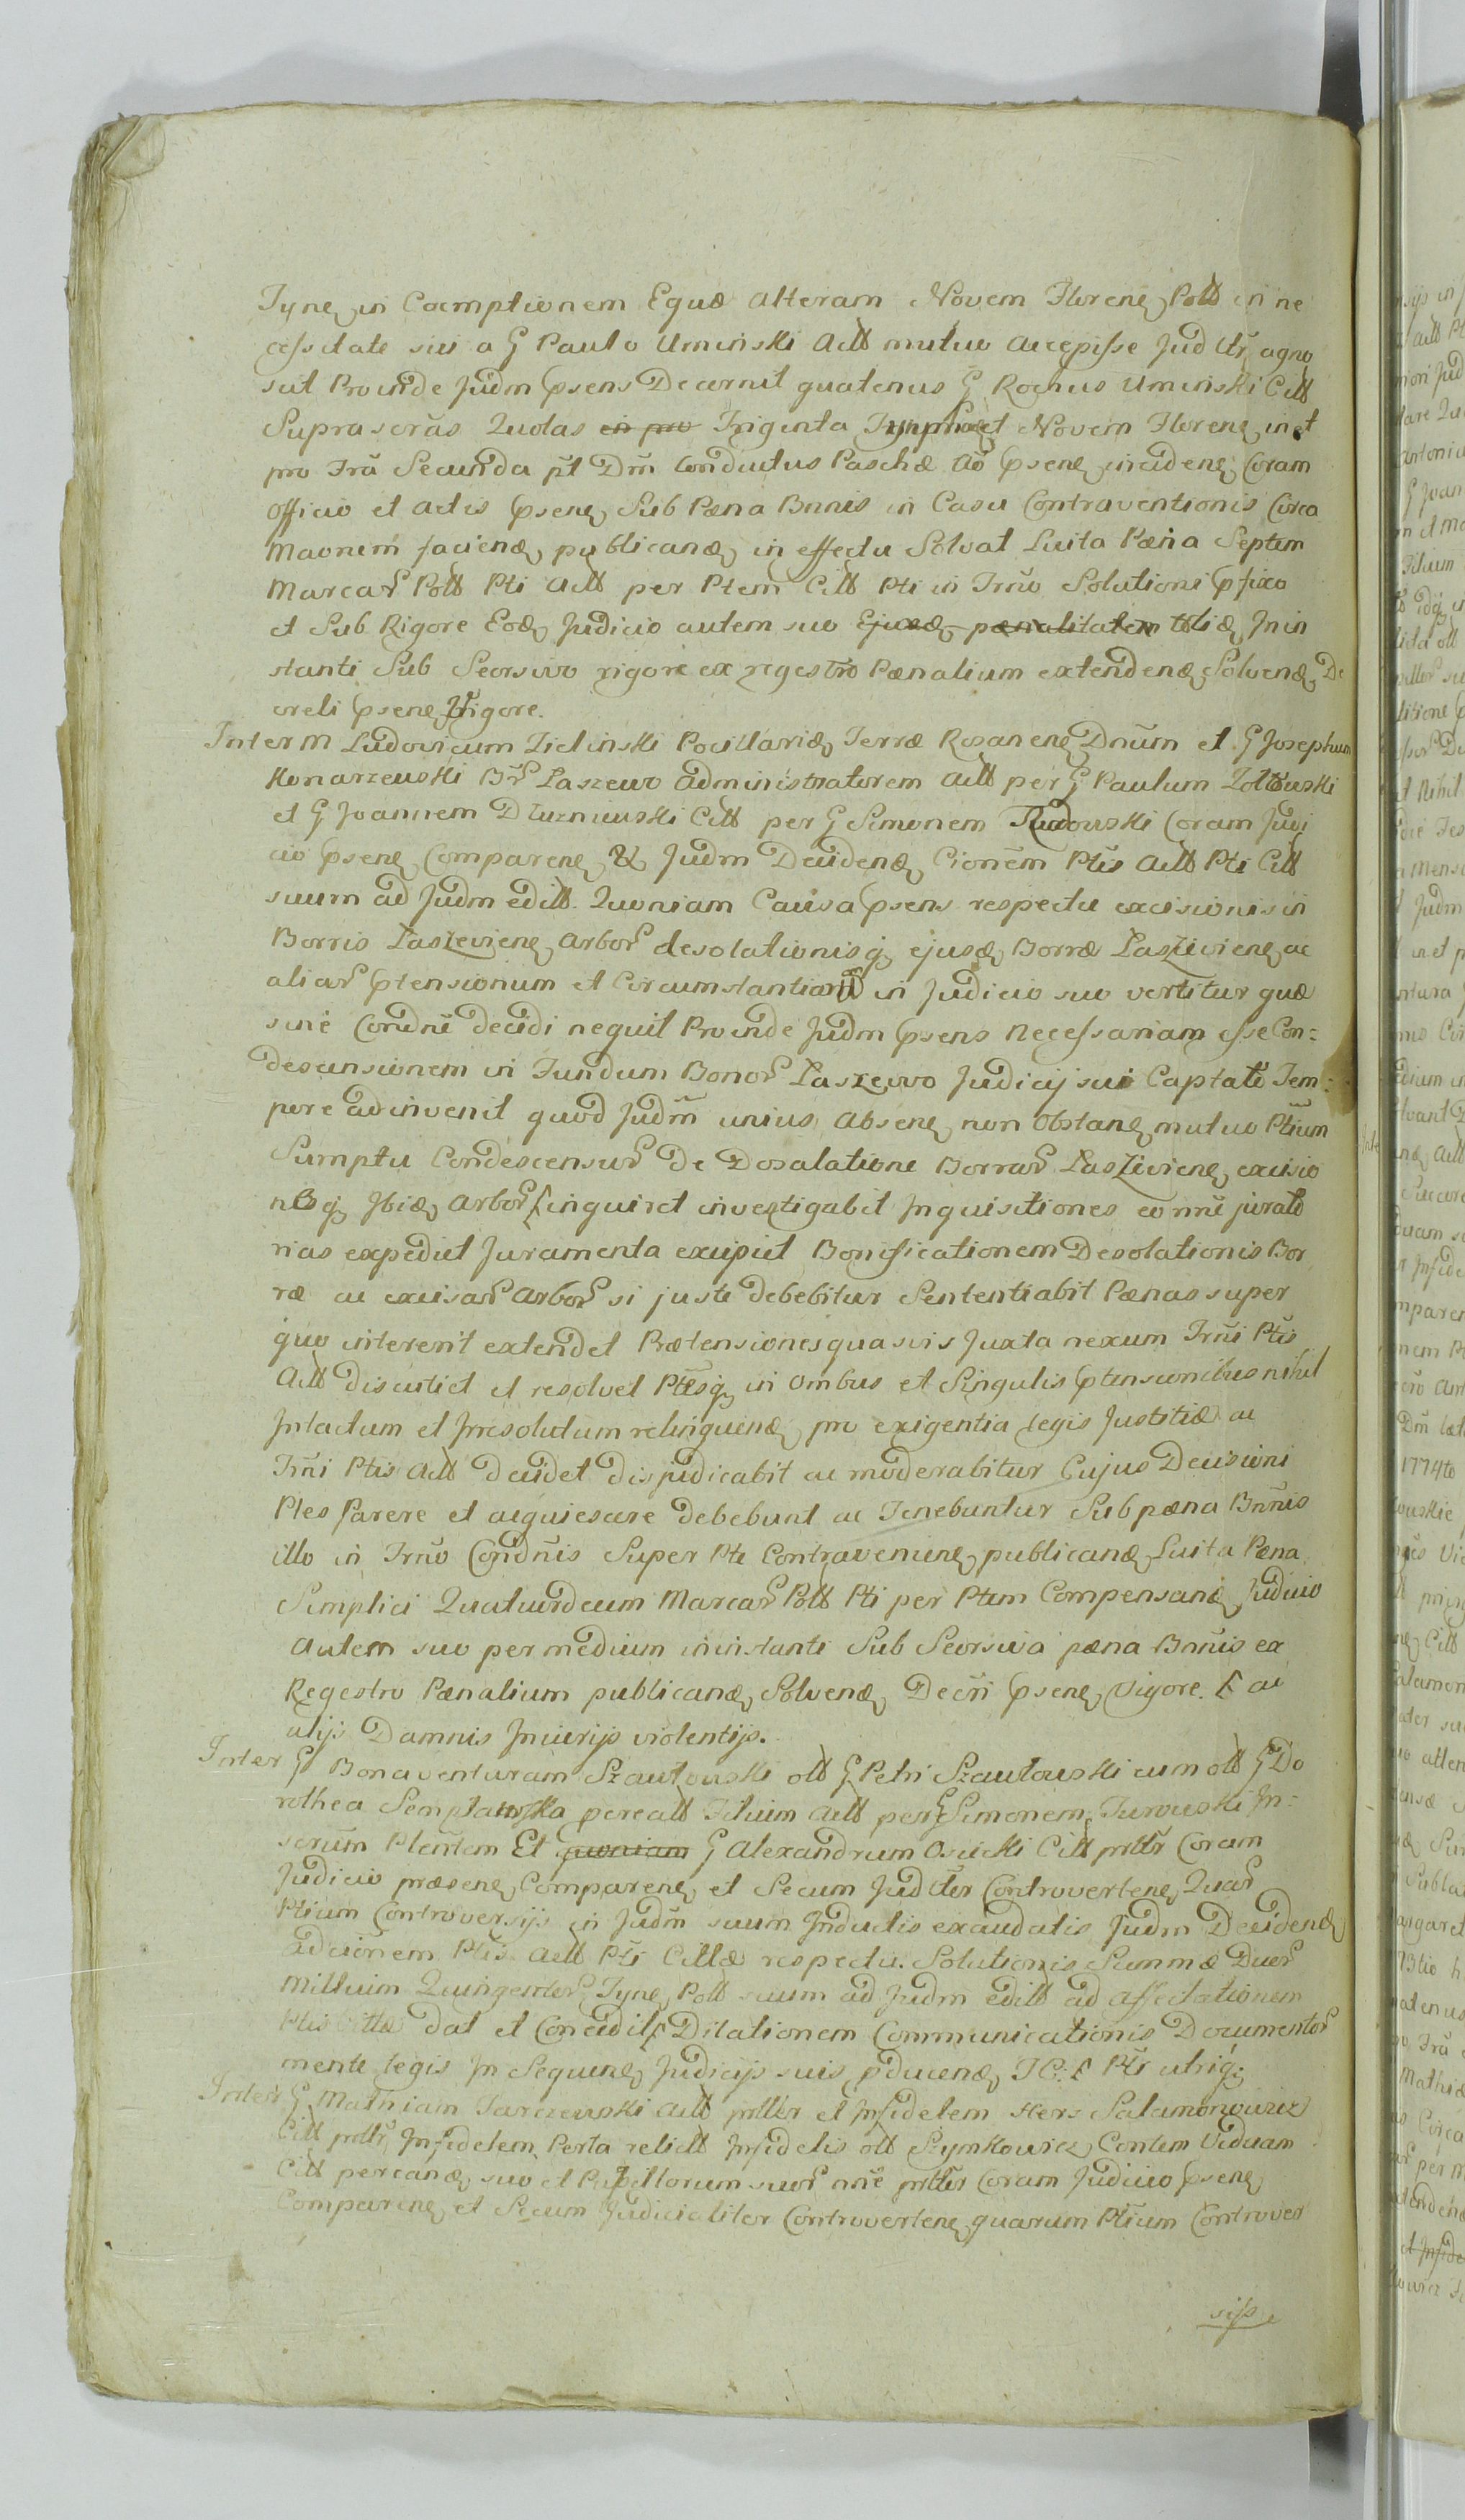 Tyne in Coemptionem Equæ alteram Novem Florene Poll in ne
cessitate sui a G Paulo Uminski Actt mutuo accepisse Jud ltr agno
scit Proinde Judm psens Decernit quatenus G Rochus Uminski Citt
Suprascrās Quotas in pro Triginta Tynph et Novem Florene in et
pro Fra Secunda pt Dm Conductus Paschæ Ao psene incidene Coram
officio et actis psene Sub Pæna Bnnis in Casu Contraventionis Circa
Maonem faciend publicand in effectu Solvat Luita Pæna Septem
Marcar Poll Pti Actt per Ptem Citt Pti in Trno Solutioni pfixo
et Sub Rigore Eod Judicio autem suo Ejusd pænalitatem totid In in
stanti Sub Seorsivo rigore ex regestro Pænalium extendend Solvend De
creti psene Vigore.
Inter M Ludovicum Zielinski Pocillarid Terræ Rosanene Dnum et G Josephum
Konarzewski Br Laszewo administratorem Actt per G Paulum Zoltowski
et G Joannem Dluzniewski Citt per G Simonem Rudowski Coram Judi
cio psene Comparene & Judm Decidend Cionem Ptis Actt Pti Citt
suum ad Judm editt. Quoniam Causa psens respectu excisionis in
Borris Laszeviene arbor desolationisq ejusd Borræ Laszeviene ac
aliar ptensionum et Circumstantiar in Judicio suo vertitur quæ
sine Condnē decidi nequit Proinde Judm psens Necessariam esse Con=
descensionem in Fundum Bonor Laszewo Judicij sui Captato Tem=
pore adinvenit quod Judm unius absene non obstane mutuo Ptium
Sumptu Condescensur De Dosalatione Borrar Laszeviene excisio
nisq Ibid arbor inquiret investigabit Inquisitiones eo nne jurato
rias expediet Juramenta excipiet Bonificationem Desolationis Bor
ræ ac excisar arbor si juste debebitur Sententiabit Pænas super
quo intererit extendet Prætensiones quasvis Juxta nexum Trni Ptis
Actt discutiet et resolvet Ptesq in ombus et Singulis ptensionibus nihil
Intactum et Irresolutum relinquend pro exigentia legis Justitiæ ac
Trni Ptis Actt decidet disjudicabit ac moderabitur Cujus Decisioni
Ptes Parere et acquiescere debebunt ac Tenebuntur Sub pæna Bnnis
illo in Trno Condnis Super Pte Contraveniene publicand Luita Pæna
Simplici Quatuordecim Marcar Poll Pti per Ptem Compensand Judicio
Autem suo per medium in instanti Sub Seorsiva pæna Bnnis ex
Regestro Pænalium publicand Solvend Decri psene Vigore. ac
alijs Damnis Injurijs violentijs.
Inter G Bonaventuram Szautowski ott G Petri Szautowski cum ott G Do
rothea Semplawska procatt Filium Actt per G Simonem Turowski In=
scrum Plentem Et quoniam G Alexandrum Osiecki Citt prttr Coram
Judicio præsene Comparene et Secum Jud lter Controvertene Quar
Ptium Controversijs in Judm suum Inductis exaudatis Judm Decidend
adcionem Ptis Actt Pti Cittæ respectu Solutionis Summæ Duor
Millium Quingentor Tyne Poll suum ad Judm editt ad affectationem
Ptis Cittæ dat et Concedit Dilationem Communicationis Documentor
mente legis In Sequene Judicijs suis pducend JC: Pti utriq.
Inter G Mathiam Sarczewski Actt prttr et Infidelem Hers Salamonowicz
Citt prttr Infidelem Perta relictt Infidelis ott Szymkowicz Contem Viduam
Citt percand suo et Pupillorum suor nne prttr Coram Judicio psene
Comparene et Secum Judicialiter Controvertene quarum Ptium Controver
sijs